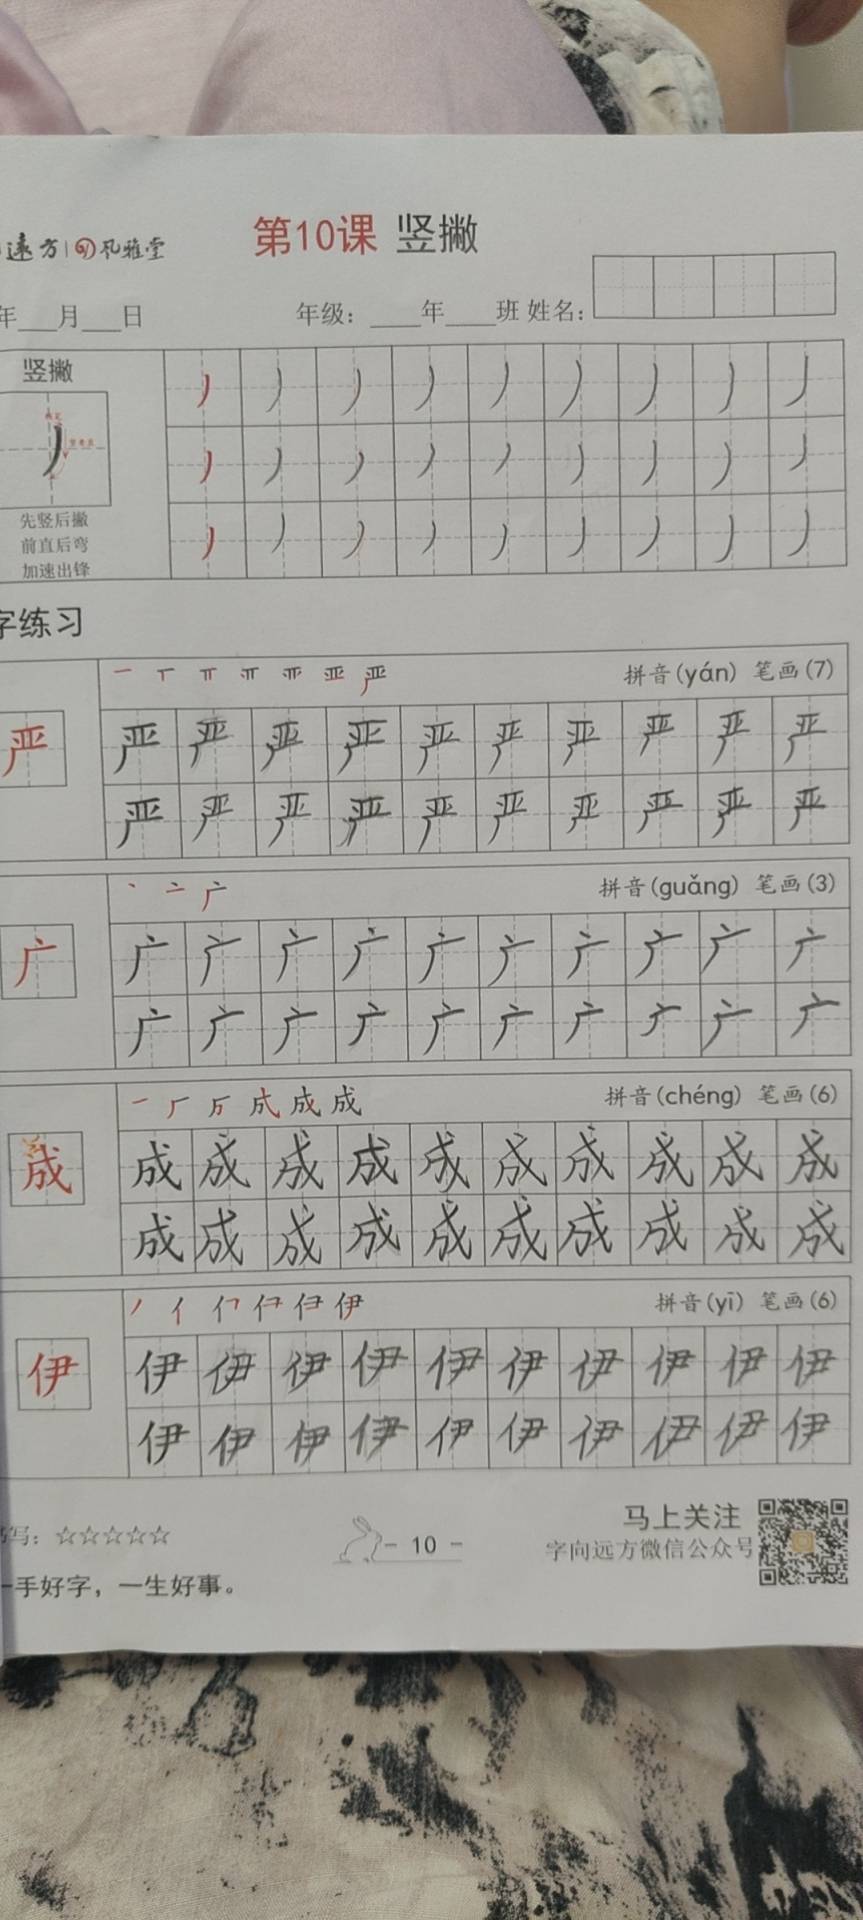 遠方 | 风雅堂
第10课 竖撇
年___月___日 年级：____年____班 姓名：
竖撇
先竖后撇
前直后弯
加速出锋
字练习
一 丅 亚 严 拼音(yán) 笔画(7)
严 严 严 严 严 严 严 严 严 严 严
严 严 严 严 严 严 严 严 严 严
丶 亠 广 拼音(guǎng) 笔画(3)
广 广 广 广 广 广 广 广 广 广 广
广 广 广 广 广 广 广 广 广 广
一 厂 成 成 成 拼音(chéng) 笔画(6)
成 成 成 成 成 成 成 成 成 成 成
成 成 成 成 成 成 成 成 成 成
丿 亻 伊 拼音(yī) 笔画(6)
伊 伊 伊 伊 伊 伊 伊 伊 伊 伊 伊
伊 伊 伊 伊 伊 伊 伊 伊 伊 伊
写：☆☆☆☆☆
一手好字，一生好事。
- 10 -
马上关注
字向远方微信公众号